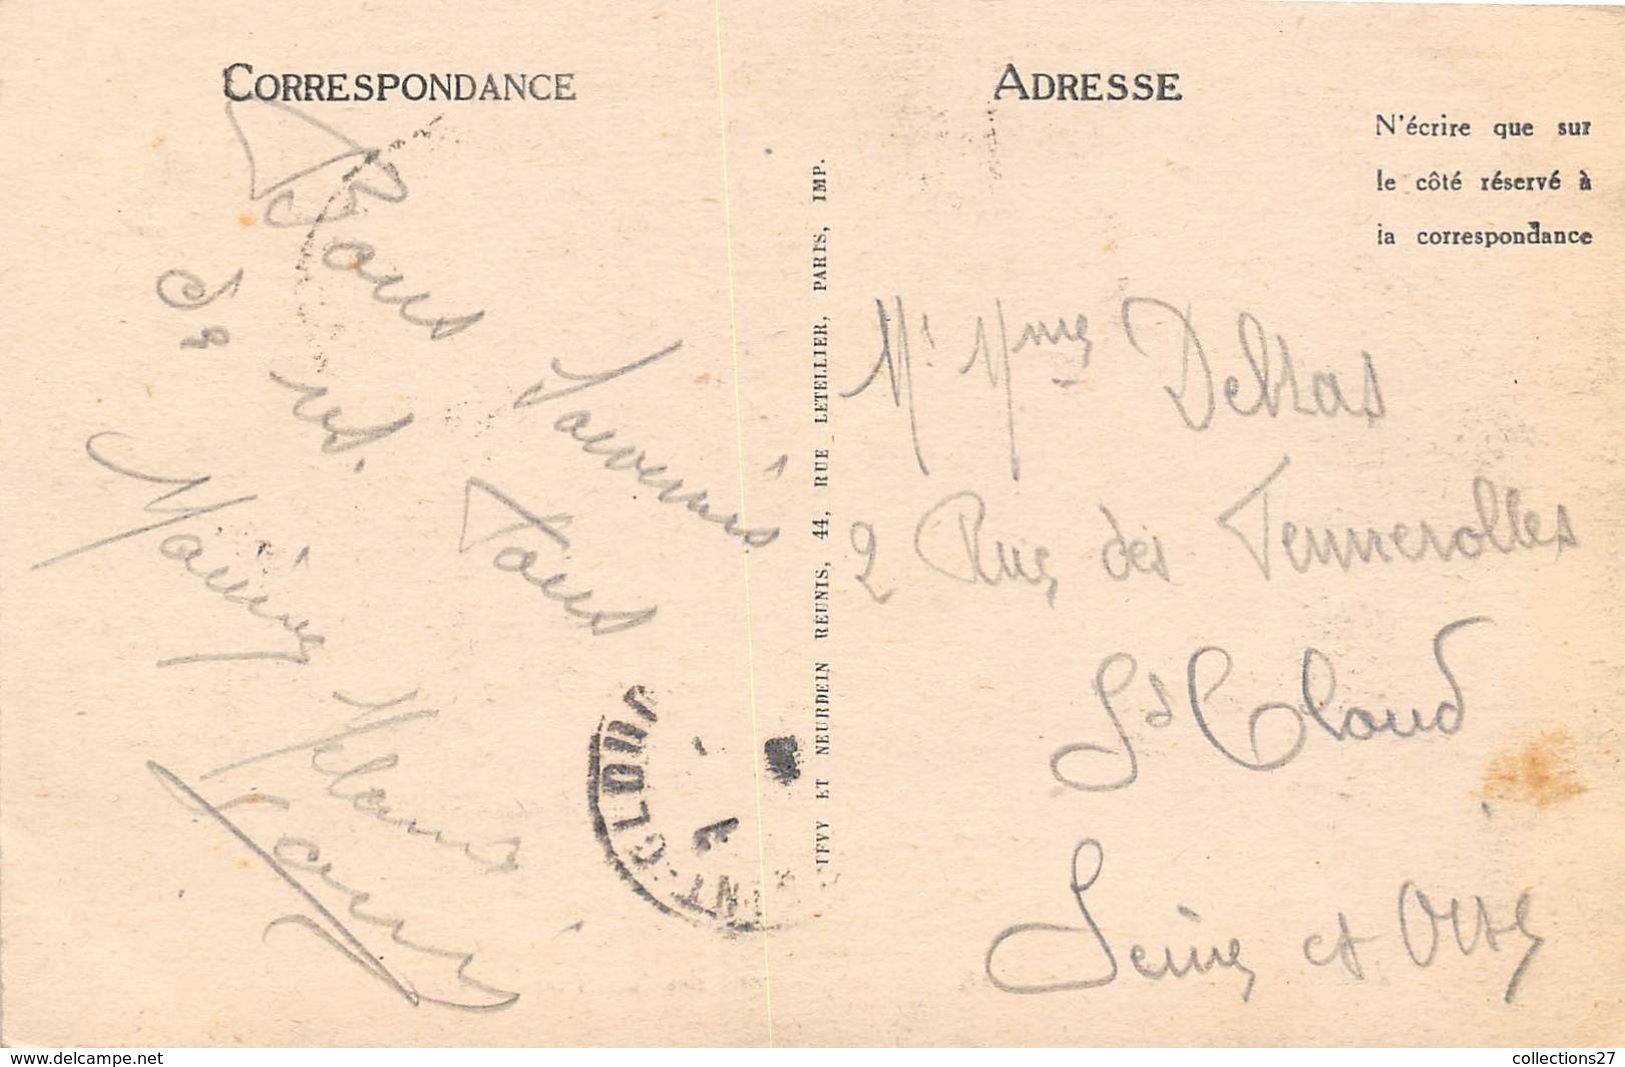 CORRESPONDANCE
Bons Souvenirs
de vs. Tous
ADRESSE
N'écrire que sur
le côté réservé à
la correspondance
LEVY ET NEURDEIN REUNIS, 44, RUE LETELLIER, PARIS, IMP.
Mr Mme Delzas
2 Rue des Tennerolles
St Cloud
Seine et Oise
NT-CLOUD
www.delcampe.net
collections27